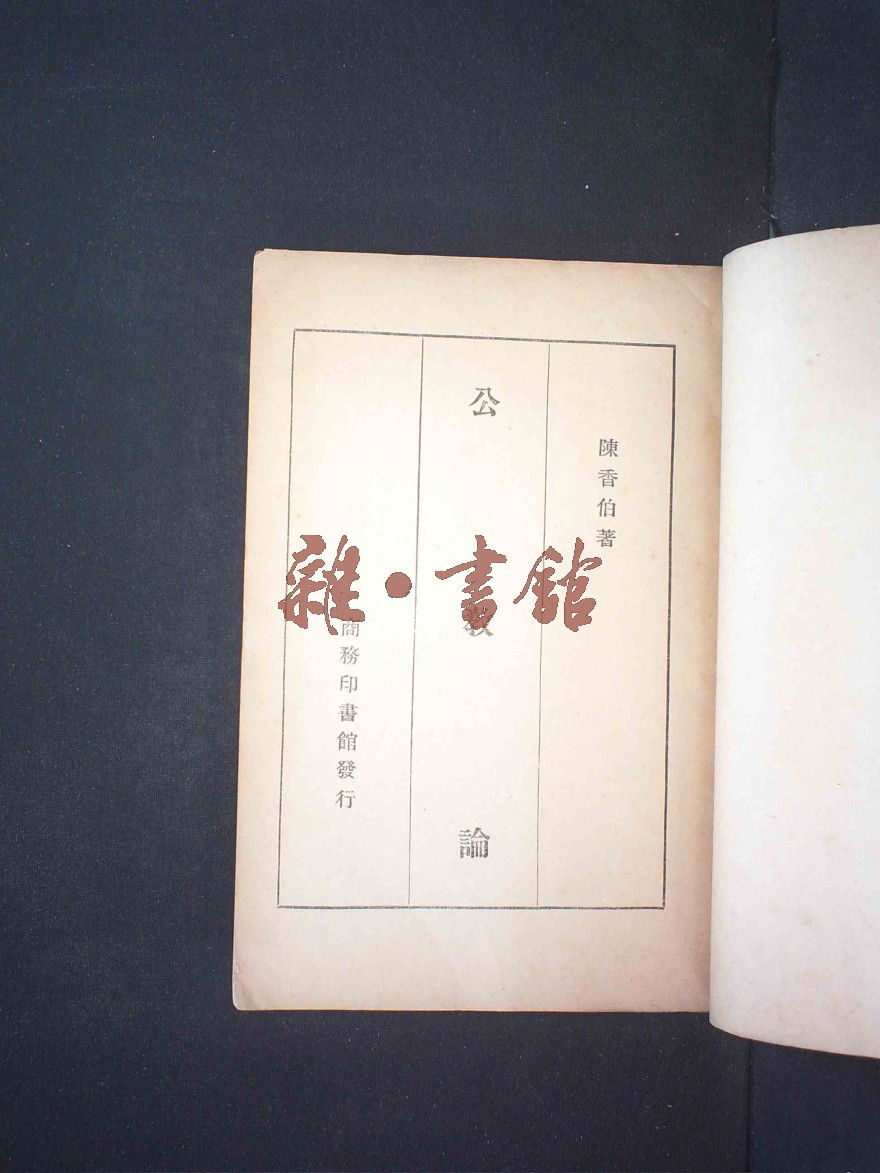 陳香伯著
公教論
商務印書館發行
雜·書館